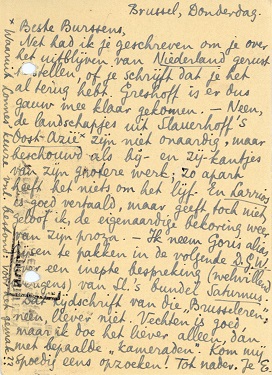 Brussel, Donderdag.
Beste Burssens,
Net had ik je geschreven om je over
het uitblijven van Nederland gerust
te stellen, of je schrijft dat je het
al terug hebt. Greshoff is er dus
gauw mee klaar gekomen. — Neen,
de landschapjes uit Slauerhoff's
Oost-Azië zijn niet onaardig, maar
beschouwd als bij- en zij-kantjes
van zijn grotere werk; zo apart
heeft het niets om het lijf. En Larrios
is goed vertaald, maar geeft toch niet,
geloof ik, de eigenaardige bekoring weer
van zijn proza. — Ik neem Goris alias
te pakken in de volgende D.G.W.
over een inepte bespreking (welwillend
van Sl.'s bundel Saturnus.
tijdschrift van die "Brusseleren"
neen, liever niet. Vechten is goed
maar ik doe het liever alleen, dan
met bepaalde "kameraden". Kom mij
spoedig eens opzoeken! Tot nader. Je E
× Waaruit